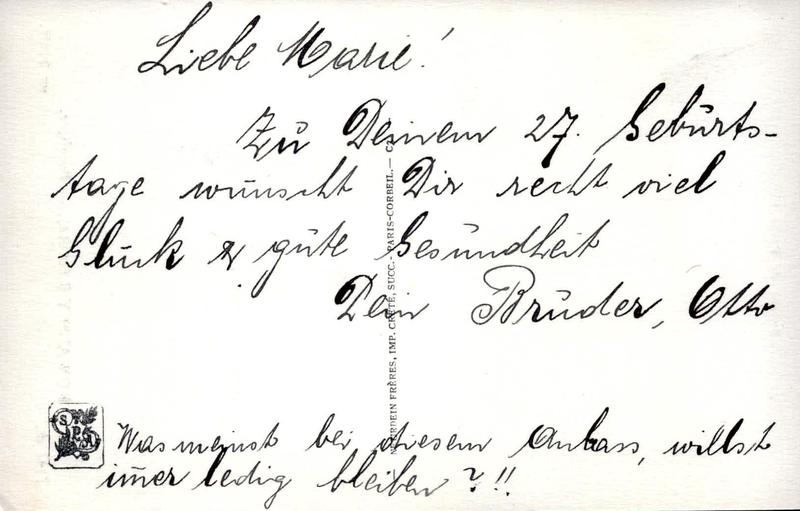 Liebe Marie!
Zu Deinem 27. Geburts-
tage wünscht Dir recht viel
Glück & gute Gesundheit
Dein Bruder, Otto
Was meinst bei diesem Anlass, willst
im̄er ledig bleiben?!!
NEURDEIN FRÈRES, IMP. CRÉTÉ, SUCC. - PARIS-CORBEIL. —